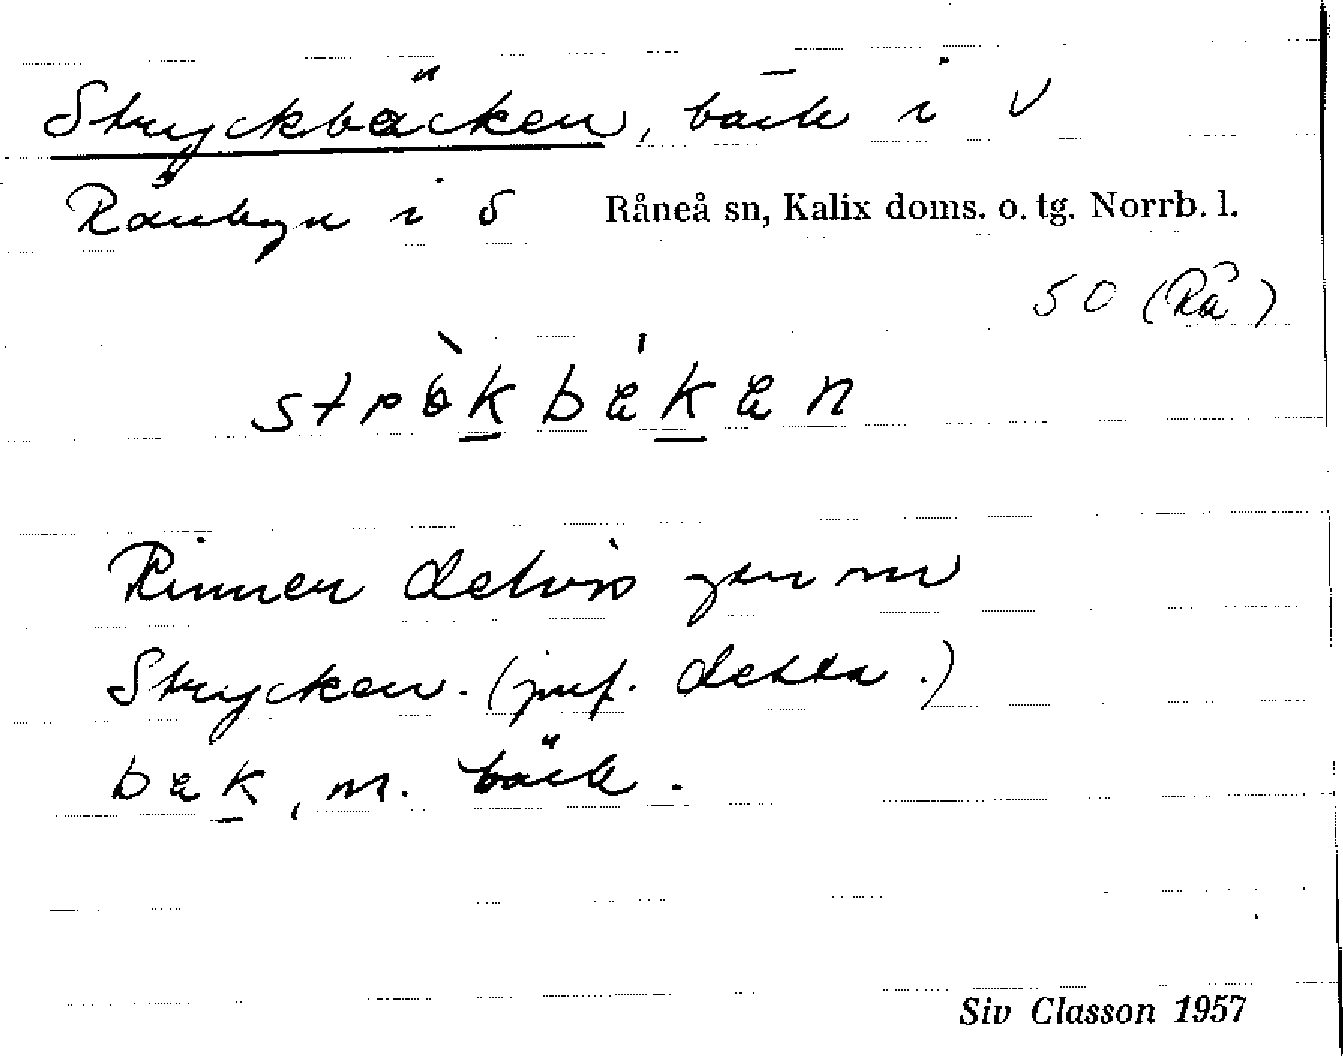 Stryckbäcken, bäck i V
Rånbyn i S Råneå sn, Kalix doms. o. tg. Norrb. l.
50 (Rå)
strò̀kbækæn
Rinner delvis genom
Strycken. (jmf. detta.)
bæk, m. bäck.
Siv Classon 1957